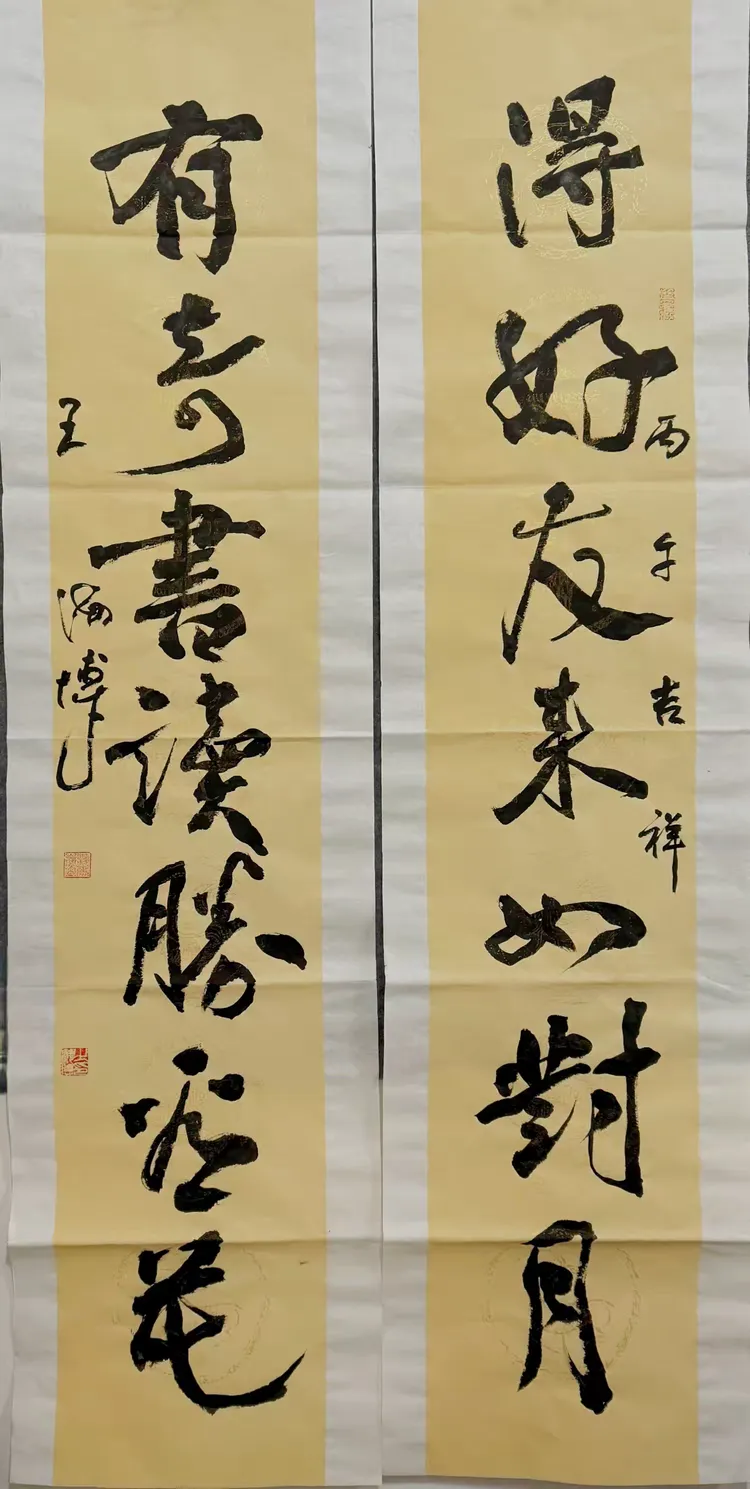 丙午吉祥
得好友来如對月
有奇書讀勝看花
王海博